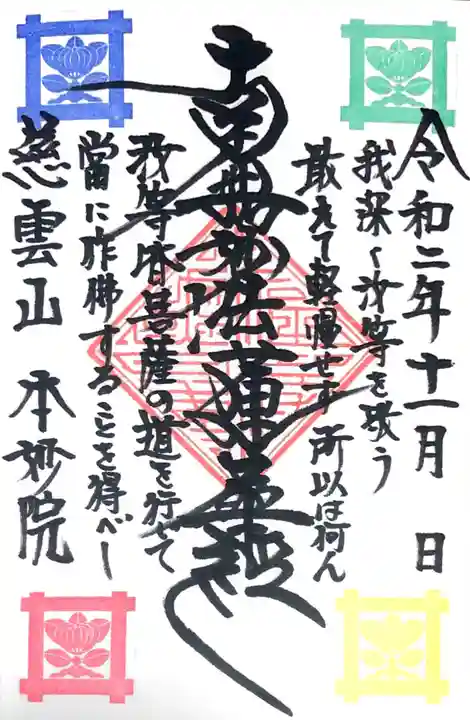 令和二年十一月 日
我深く汝等を敬う
敢えて軽慢せず 所以は何ん
南無妙法蓮華経
汝等皆菩薩の道を行じて
當に作佛することを得べし
慈雲山 本妙院